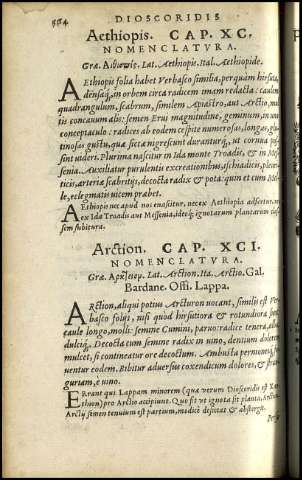 DIOSCORIDIS
Aethiopis. CAP. XC.
NOMENCLATVRA.
Lat. Aethiopis. Ital. Aethiopide.
AEthiopis folia habet Verbasco similia, perquam hirsuta,
densaq́;, in orbem circa radicem imam redacta: caulem
quadrangulum, scabrum, similem Apiastro, aut Arctio, mul
tis concauum alis: semen Erui magnitudine, geminum, in uno
conceptaculo: radices ab eodem cespite numerosas, longas, glu
tinosas gustu, quæ siccæ nigrescunt durantur, ut cornua pos
sint uideri. Plurima nascitur in Ida monte Troadis, & in Mes
senia. Auxiliatur purulentis excreationibus, ischiadicis, pleu
riticis, arteriæ scabritijs, decocta radix & pota: quin et cum Mel
le, eclegmatis uicem præbet.
AEthiopis nec apud nos nascitur, necex Aethiopia adfertur,
ex Ida Troadis aut Messenia, ideoq́; ignotarum plantarum
sem subitura.
Arction. CAP. XCI.
NOMENCLATVRA.
Lat. Arction. Ita. Arctio. Gal.
Bardane. Offi. Lappa.
ARction, aliqui potius Arcturum uocant, similis est Ver
basco folijs, nisi quod hirsutiora & rotundiora sint,
caule longo, molli: semine Cumini, paruo: radice tenera, alba,
dulciq́;. Decocta cum semine radix in uino, dentium dolores
mulcet, si contineatur ore decoctum. Ambusta perniones,
uentur eodem. Bibitur aduersus coxendicum dolores, & stran
guriam, e uino.
ERrant qui Lappam minorem (quæ uerum Dioscoridis est Xan
thion) pro Arctio accipiunt. Que sit ut ignota sit planta,
Arctij semen tenuium est partium, modicè desiccat & abstergit.